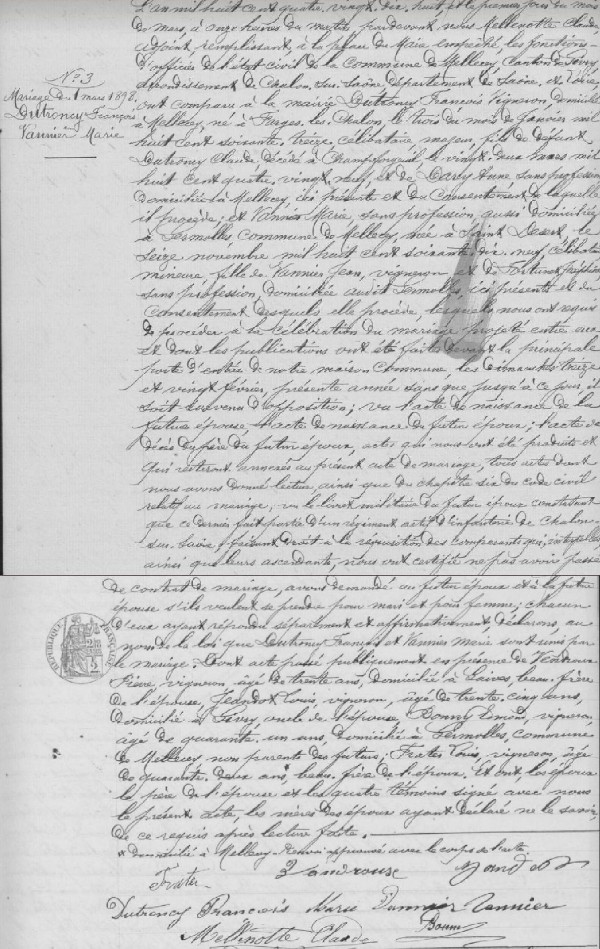 L'an mil huit cent quatre vingt dix huit et le premier jour du mois
de mars, à onze heures du matin pardevant nous Mellenotte Claude
adjoint, remplissant, à la place du Maire empêché, les fonctions
d'officier de l'état civil de la Commune de Mellecey Canton de Givry
arrondissement de Chalon sur Saône, département de Saône et Loire,
N° 3
Mariage du 1 mars 1898.
Dutroncy François
Vannier Marie
ont comparu à la mairie Dutroncy François Vigneron, domicilié
à Mellecey, né à Farges les Chalon, le trois du mois de Janvier mil
huit cent soixante treize, célibataire majeur, fils de défunt
Dutroncy Claude décédé à Champforgeuil le vingt deux mars mil
huit cent quatre vingt neuf et de Carry Anne sans profession
domiciliée à Mellecey, ici présente et du Consentement de laquelle
il procède; et Vannier Marie, sans profession, aussi domiciliée
à Germolles, Commune de Mellecey, née à Saint Desert, le
seize novembre mil huit cent soixante dix neuf, célibataire
mineure fille de Vannier Jean, vigneron et de
sans profession, domiciliés audit Germolles, ici présents et du
consentement desquels elle procède, lesquels nous ont requis
de procéder à la célébration du mariage projeté entre eux
et dont les publications ont été faites devant la principale
porte d'entrée de notre maison Commune, les dimanches treize
et vingt février, présente année sans que jusqu'à ce jour il
soit survenu d'opposition; vu l'acte de naissance de la
future épouse, l'acte de naissance du futur époux; l'acte de
décès du père du futur époux, actes qui nous ont été produits et
qui resteront annexés au présent acte de mariage, tous actes dont
nous avons donné lecture, ainsi que du chapitre six du code civil
relatif au mariage; vu le livret militaire du futur époux constatant
que ce dernier fait partie d'un régiment actif d'infanterie de Chalon-
sur-Saône; faisant droit à la réquisition des comparants qui, interpellés
ainsi que leurs ascendants, nous ont certifié ne pas avoir passé
de contrat de mariage, avons demandé au futur époux et à la future
épouse s'ils veulent se prendre pour mari et pour femme; chacun
d'eux ayant répondu séparément et affirmativement déclarons au
nom de la loi que Dutroncy François et Vannier Marie sont unis par
le mariage. Dont acte passé publiquement en présence de
Pierre, vigneron âgé de trente ans, domicilié à Laives, beau-frère
de l'épouse, Jeandot Louis, vigneron, âgé de trente cinq ans,
domicilié à Givry, oncle de l'épouse, Bonny, vigneron,
âgé de quarante un ans, domicilié à Germolles commune
de Mellecey, non parents des futurs; Frater Louis, vigneron, âgé
de quarante deux ans, beau-frère de l'époux. Et ont les époux
le père de l'épouse et les quatre témoins signé avec nous
le présent acte, les mères des époux ayant déclaré ne le savoir
de ce requis après lecture faite.
* domicilié à Mellecey Renvoi approuvé avec le corps de l'acte.
RÉPUBLIQUE FRANÇAISE
Frater
Dutroncy François Marie Vannier Vannier
Mellenotte Claude Bonny